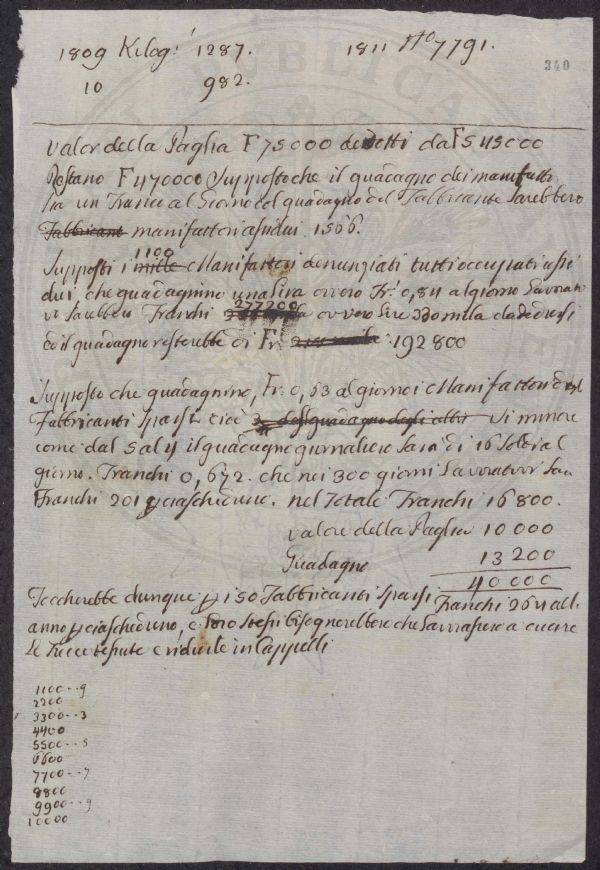 1809 Kilog.i 1287. 1811 No 7791.
340
10 982.
Valor della Paglia F 75000 dedotti da F 545000
Restano F 470000 Supposto che il guadagno dei manifatti
sia un Franco al Giorno col guadagno del Fabbricante sarebbero
Fabbricant manifattori assidui 1566.
1100
Supposti i mille Manifattori denunziati tutti occupati assi
dui che guadagnino una lira ovvero Fr. 0,84 al giorno Lavorati
277200
vi sarebbero Franchi ovvero Lire
ed il guadagno resterebbe di Fr. 192 800
Supposto che guadagnino, Fr. 0,53 al giorno i Manifattori
Fabbricanti sparsi cioè 3 del guadagno degli altri vi minore
come dal 5 al 4 il guadagno giornaliere sarà di 16 Soldi al
giorno. Franchi 0,672. che nei 300 giorni Lavorativi
Franchi 201 p ciascheduno. nel Totale Franchi 16 800.
valore della Paglia 10 000
Guadagno 13 200
40 000
Toccherebbe dunque p i 50 Fabbricanti sparsi Franchi 264 all
anno p ciascheduno, e loro stessi bisognerebbe che a cucire
le trecce tessute e ridurle in Cappelli
1100--9
2200
3300--3
4400
5500--5
6600
7700--7
8800
9900--9
10000